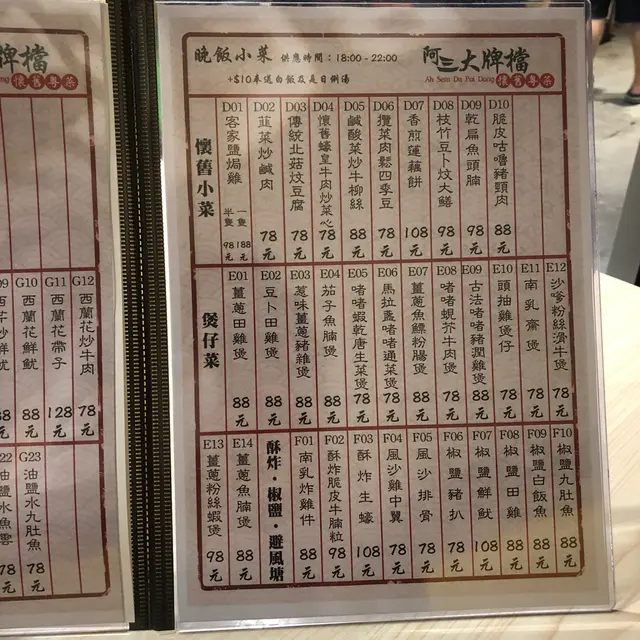 牌檔
懷舊粵菜
G10 西蘭花鮮魷 88元
G11 西蘭花帶子 128元
G12 西蘭花炒牛肉 78元
G23 油鹽水九肚魚 78元
晚飯小菜 供應時間：18:00 - 22:00
+$10奉送白飯及是日例湯
阿三大牌檔
Ah Sem Da Pai Dong 懷舊粵菜
懷舊小菜
D01 客家鹽焗雞 半隻 98元 一隻 188元
D02 韮菜炒鹹肉 78元
D03 傳統北菇炆豆腐 78元
D04 懷舊蠔皇牛肉炒菜心 78元
D05 鹹酸菜炒牛柳絲 88元
D06 攬菜肉鬆四季豆 78元
D07 香煎蓮藕餅 108元
D08 枝竹豆卜炆大鱔 98元
D09 乾扁魚頭腩 98元
D10 脆皮咕嚕豬頸肉 88元
煲仔菜
E01 薑蔥田雞煲 88元
E02 豆卜田雞煲 88元
E03 惹味薑蔥豬雜煲 88元
E04 茄子魚腩煲 88元
E05 啫啫蝦乾唐生菜煲 78元
E06 馬拉盞啫啫通菜煲 78元
E07 薑蔥魚鰾粉腸煲 88元
E08 啫啫蜆芥牛肉煲 78元
E09 古法啫啫豬潤雞煲 88元
E10 頭抽雞煲仔 78元
E11 南乳齋煲 78元
E12 沙嗲粉絲滑牛煲 78元
E13 薑蔥粉絲蝦煲 98元
E14 薑蔥魚腩煲 88元
酥炸・椒鹽・避風塘
F01 南乳炸雞件 88元
F02 酥炸脆皮牛腩粒 98元
F03 酥炸生蠔 108元
F04 風沙雞中翼 78元
F05 風沙排骨 78元
F06 椒鹽豬扒 78元
F07 椒鹽鮮魷 108元
F08 椒鹽田雞 88元
F09 椒鹽白飯魚 88元
F10 椒鹽九肚魚 88元